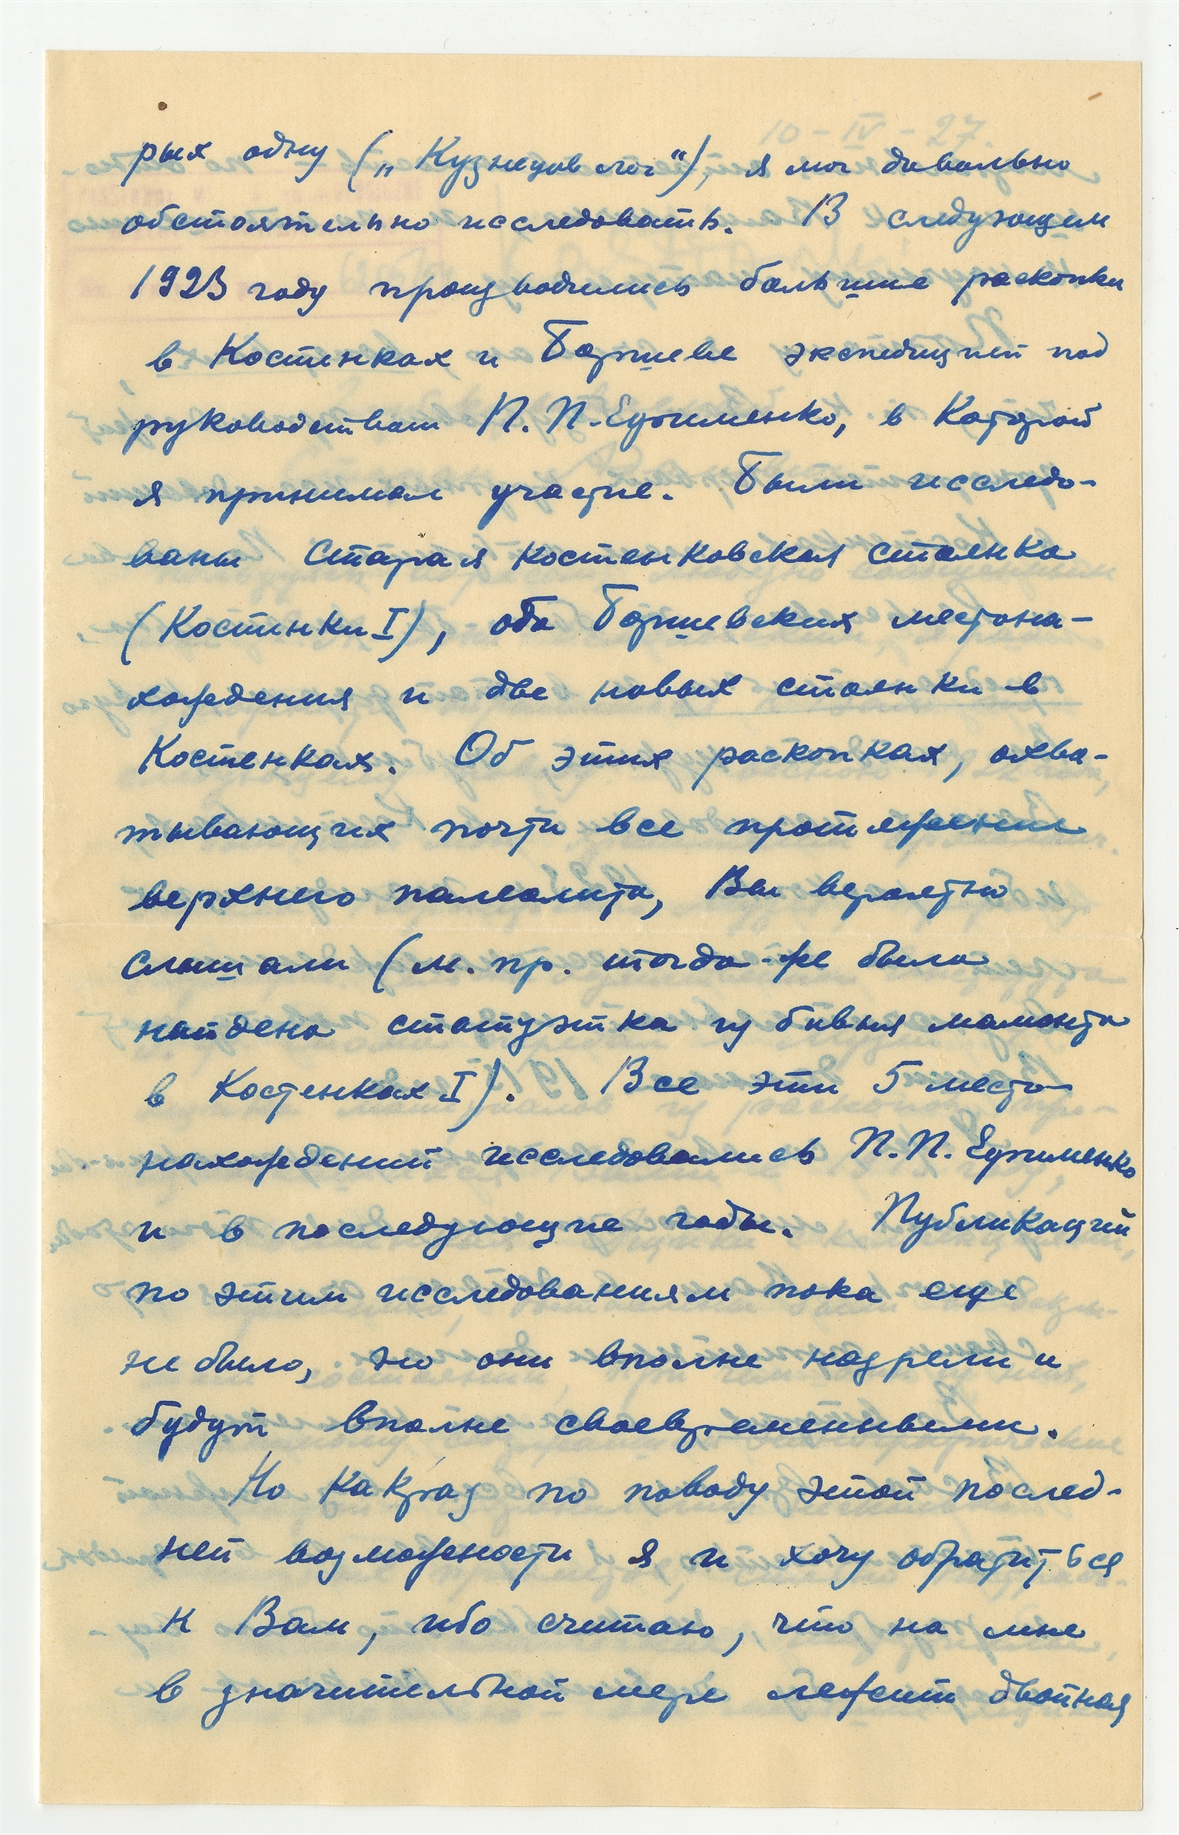 рых одну („Кузнецов лог“), я мог довольно
обстоятельно исследовать. В следующем
1923 году производились большие раскопки
в Костенках и Боршеве экспедицией под
руководством П. П. Ефименко, в которой
я принимал участие. Были исследо-
ваны Старая костенковская стоянка
(Костенки I), оба Боршевских местона-
хождения и две новых стоянки в
Костенках. Об этих раскопках, охва-
тывающих почти все протяжение
верхнего палеолита, Вы вероятно
слышали (м. пр. тогда-же была
найдена статуэтка из бивня мамонта
в Костенках I). Все эти 5 место-
нахождений исследовались П. П. Ефименко
и в последующие годы. Публикаций
по этим исследованиям пока еще
не было, но они вполне назрели и
будут вполне своевременными.
Но как раз по поводу этой послед-
ней возможности я и хочу обратиться
к Вам, ибо считаю, что на мне
в значительной мере лежит двойная